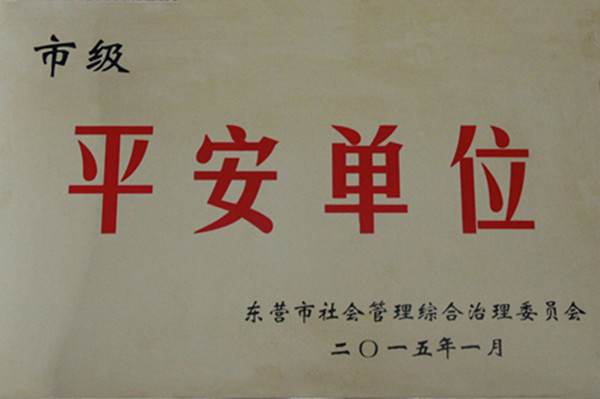 市级
平安单位
东营市社会管理综合治理委员会
二〇一五年一月